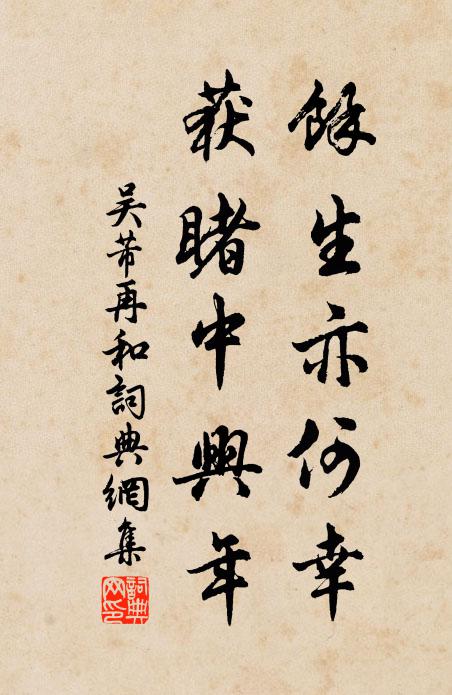 餘生亦何幸
获睹中興年
吴芾再和詞典網集
詞典網印